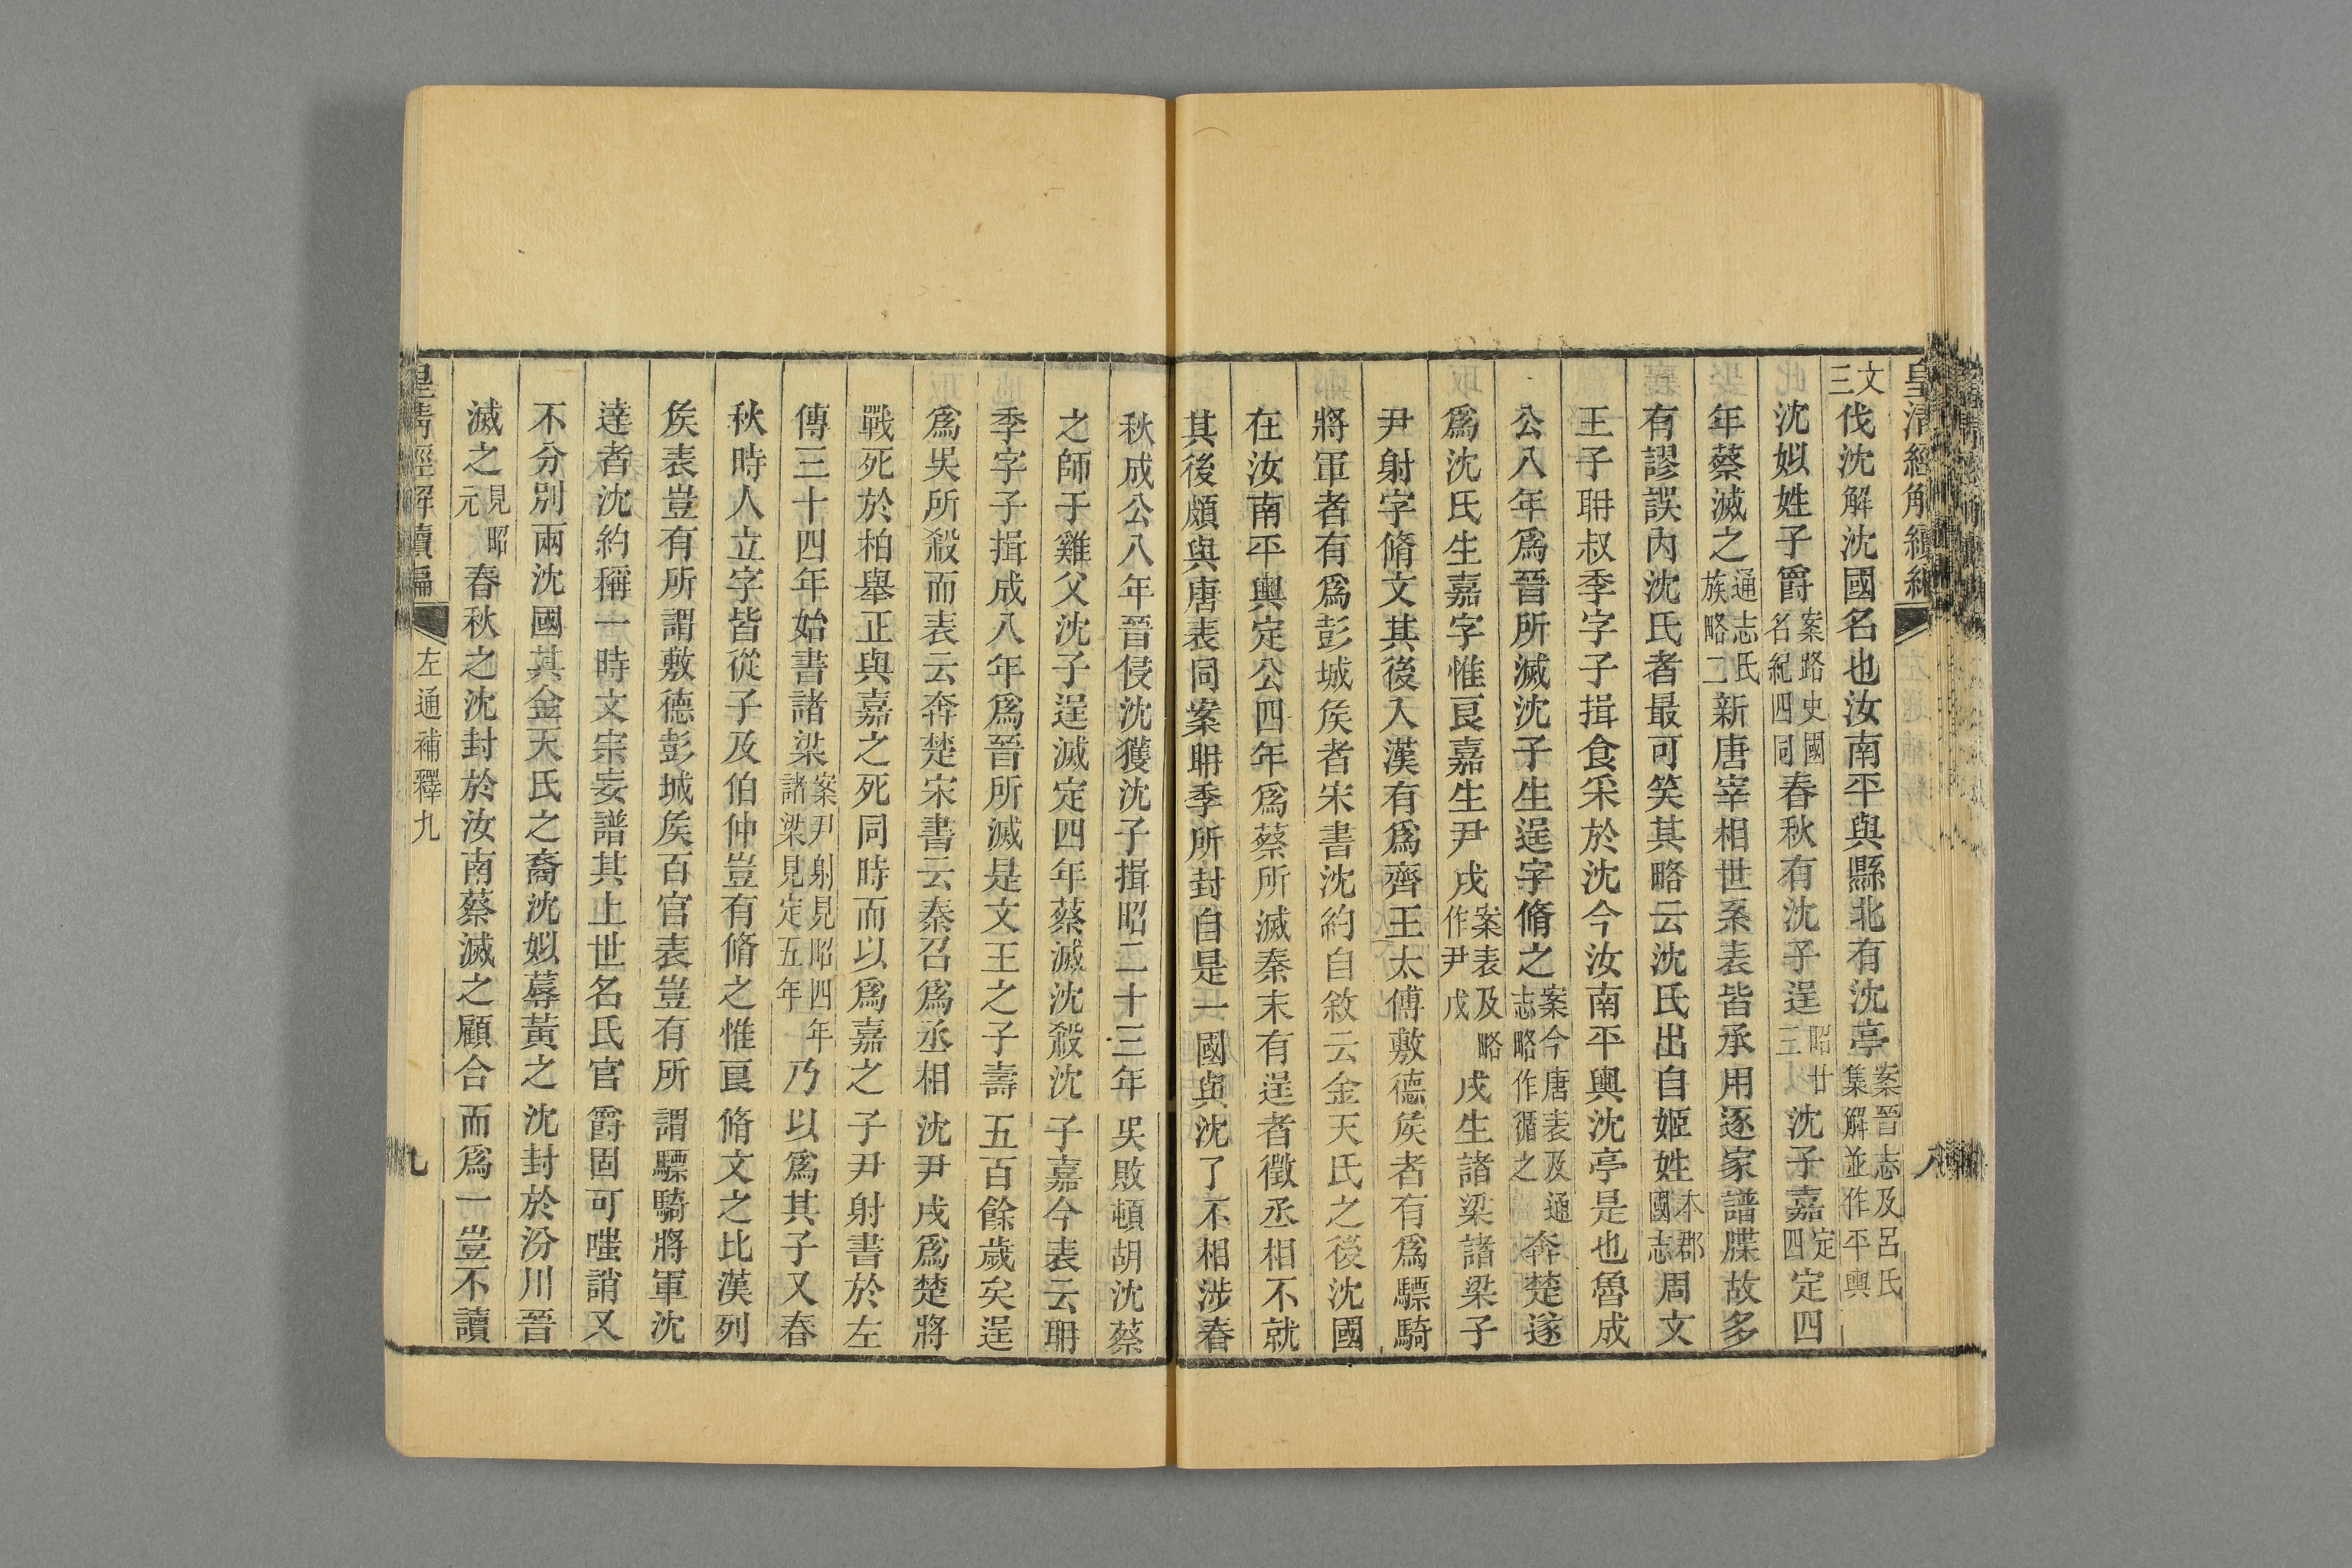 皇清經解續編
八
文三伐沈解沈國名也汝南平與縣北有沈亭案晉志及呂氏集解並作平輿
沈姒姓子爵案路史國名紀四同春秋有沈子逞昭廿三沈子嘉定四定四
年蔡滅之通志氏族略二新唐宰相世系表皆承用逐家譜牒故多
有謬誤內沈氏者最可笑其略云沈氏出自姬姓本郡國志周文
王子聃叔季字子揖食采於沈今汝南平輿沈亭是也魯成
公八年爲晉所滅沈子生逞字脩之案今唐表及通志略作循之奔楚遂
爲沈氏生嘉字惟良嘉生尹戌案表及略作尹戊戌生諸梁諸梁子
尹射字脩文其後入漢有爲齊王太傅敷德矦者有爲驃騎
將軍者有爲彭城矦者宋書沈約自敘云金天氏之後沈國
在汝南平輿定公四年爲蔡所滅秦末有逞者徵丞相不就
其後頗與唐表同案聃季所封自是一國與沈了不相涉春
秋成公八年晉侵沈獲沈子揖昭二十三年吳敗頓胡沈蔡
之師于雞父沈子逞滅定四年蔡滅沈殺沈子嘉今表云聃
季字子揖成八年爲晉所滅是文王之子壽五百餘歲矣逞
爲吳所殺而表云奔楚宋書云秦召爲丞相沈尹戌爲楚將
戰死於柏舉正與嘉之死同時而以爲嘉之子尹射書於左
傳三十四年始書諸梁案尹射見昭四年諸梁見定五年乃以爲其子又春
秋時人立字皆從子及伯仲豈有脩之惟良脩文之比漢列
矦表豈有所謂敷德彭城矦百官表豈有所謂驃騎將軍沈
達者沈約稱一時文宗妄譜其上世名氏官爵固可嗤誚又
不分別兩沈國其金天氏之裔沈姒蓐黃之沈封於汾川晉
滅之見昭元春秋之沈封於汝南蔡滅之顧合而爲一豈不讀
皇淸經解續編
左通補釋九
九